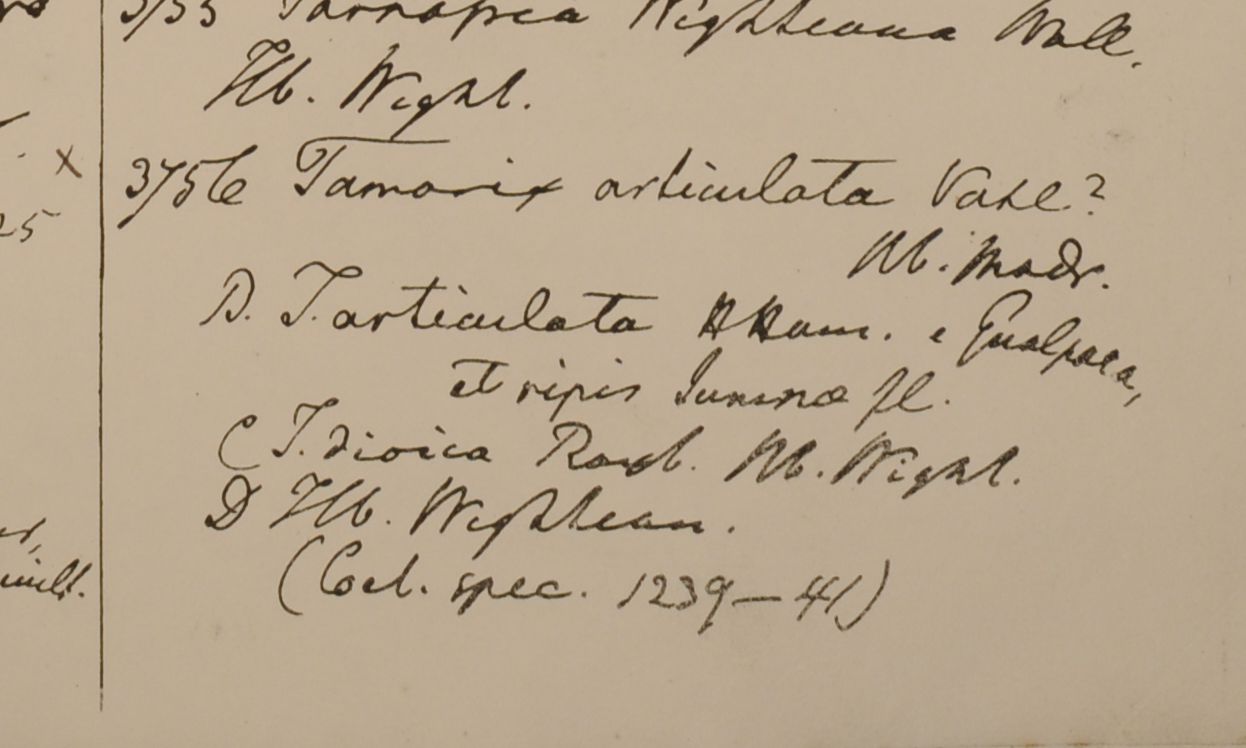 3755 Tarrapea Wightiana Wall.
Hb. Wight.
x
3756 Tamarix articulata Vahl?
Hb. Madr.
B. T. articulata HHam. e Gualpara,
25
et ripis Jumnæ fl.
C T. dioica Roxb. Hb. Wight.
D Hb. Wightian.
(Cel. spec. 1239—41)